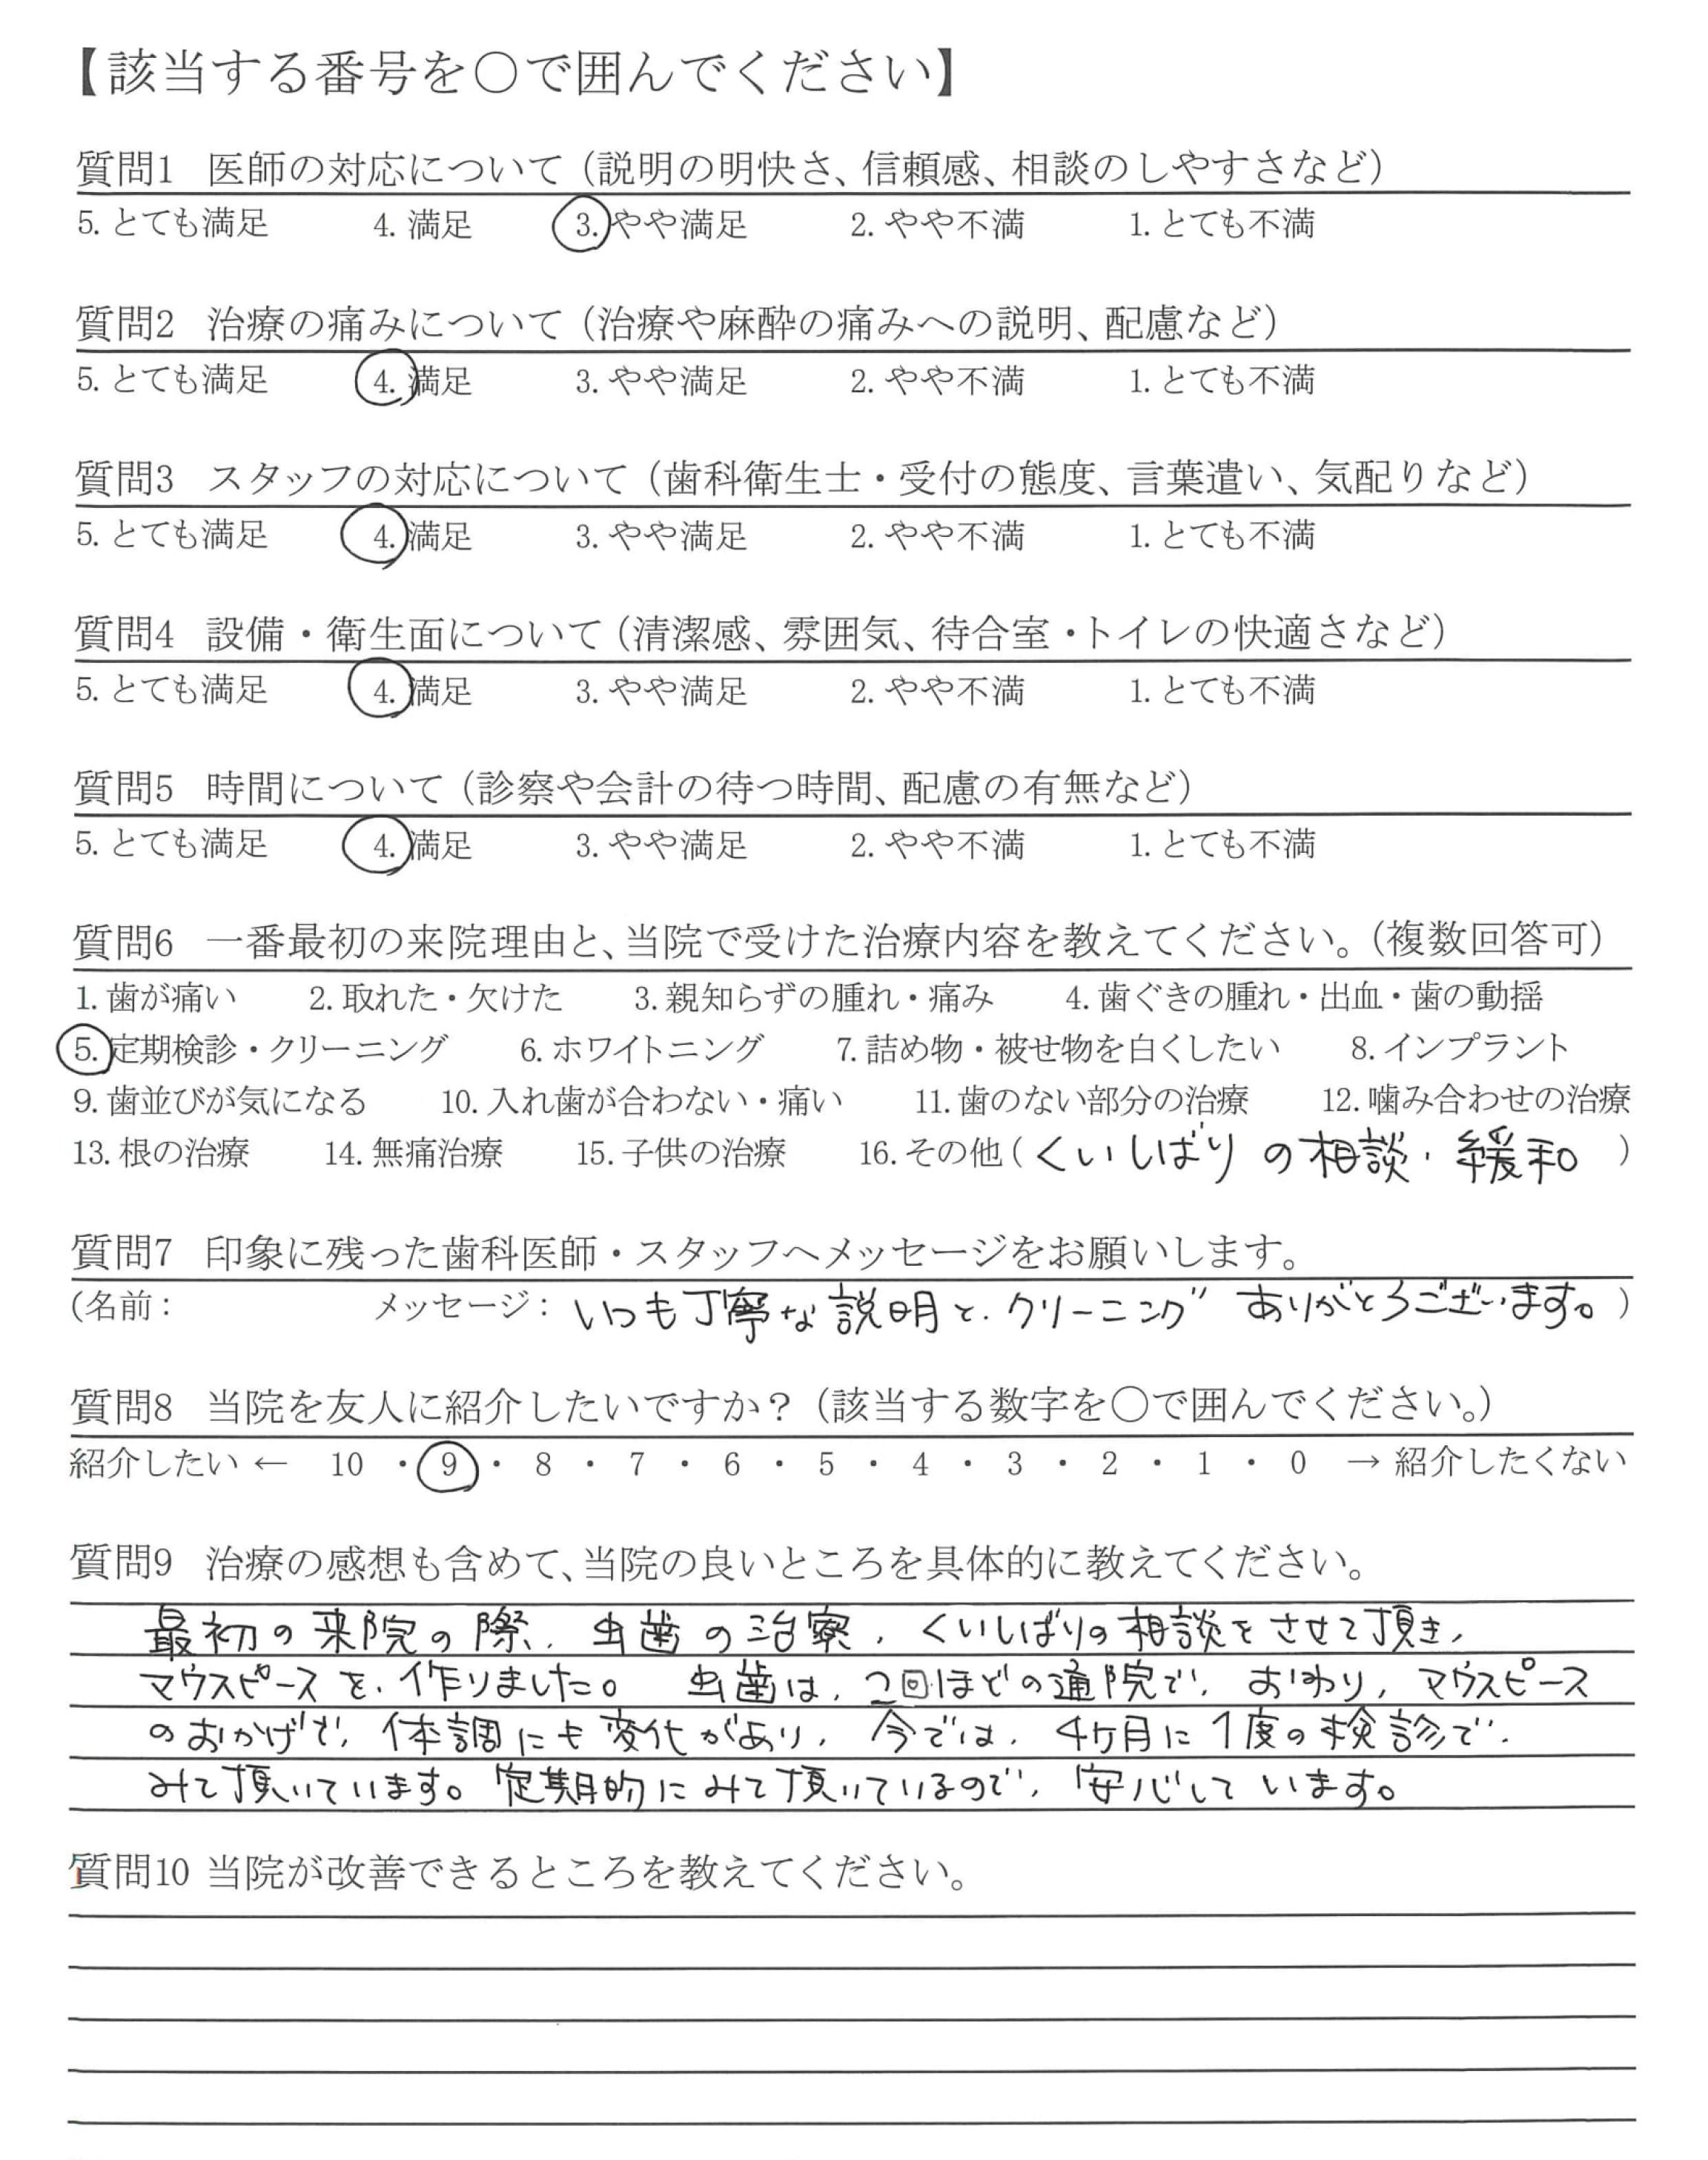 【該当する番号を〇で囲んでください】
質問1 医師の対応について（説明の明快さ、信頼感、相談のしやすさなど）
5. とても満足 4. 満足 3. やや満足 2. やや不満 1. とても不満
質問2 治療の痛みについて（治療や麻酔の痛みへの説明、配慮など）
5. とても満足 4. 満足 3. やや満足 2. やや不満 1. とても不満
質問3 スタッフの対応について（歯科衛生士・受付の態度、言葉遣い、気配りなど）
5. とても満足 4. 満足 3. やや満足 2. やや不満 1. とても不満
質問4 設備・衛生面について（清潔感、雰囲気、待合室・トイレの快適さなど）
5. とても満足 4. 満足 3. やや満足 2. やや不満 1. とても不満
質問5 時間について（診察や会計の待つ時間、配慮の有無など）
5. とても満足 4. 満足 3. やや満足 2. やや不満 1. とても不満
質問6 一番最初の来院理由と、当院で受けた治療内容を教えてください。（複数回答可）
1. 歯が痛い 2. 取れた・欠けた 3. 親知らずの腫れ・痛み 4. 歯ぐきの腫れ・出血・歯の動揺
5. 定期検診・クリーニング 6. ホワイトニング 7. 詰め物・被せ物を白くしたい 8. インプラント
9. 歯並びが気になる 10. 入れ歯が合わない・痛い 11. 歯のない部分の治療 12. 噛み合わせの治療
13. 根の治療 14. 無痛治療 15. 子供の治療 16. その他（くいしばりの相談・緩和）
質問7 印象に残った歯科医師・スタッフへメッセージをお願いします。
（名前： メッセージ：いつも丁寧な説明と、クリーニング ありがとうございます。）
質問8 当院を友人に紹介したいですか？（該当する数字を〇で囲んでください。）
紹介したい ← 10 ・ 9 ・ 8 ・ 7 ・ 6 ・ 5 ・ 4 ・ 3 ・ 2 ・ 1 ・ 0 → 紹介したくない
質問9 治療の感想も含めて、当院の良いところを具体的に教えてください。
最初の来院の際、虫歯の治療、くいしばりの相談をさせて頂き、
マウスピースを、作りました。 虫歯は、2回ほどの通院で、おわり、マウスピース
のおかげで、体調にも変化があり、今では、4ヶ月に1度の検診で、
みて頂いています。定期的にみて頂いているので、安心しています。
質問10 当院が改善できるところを教えてください。